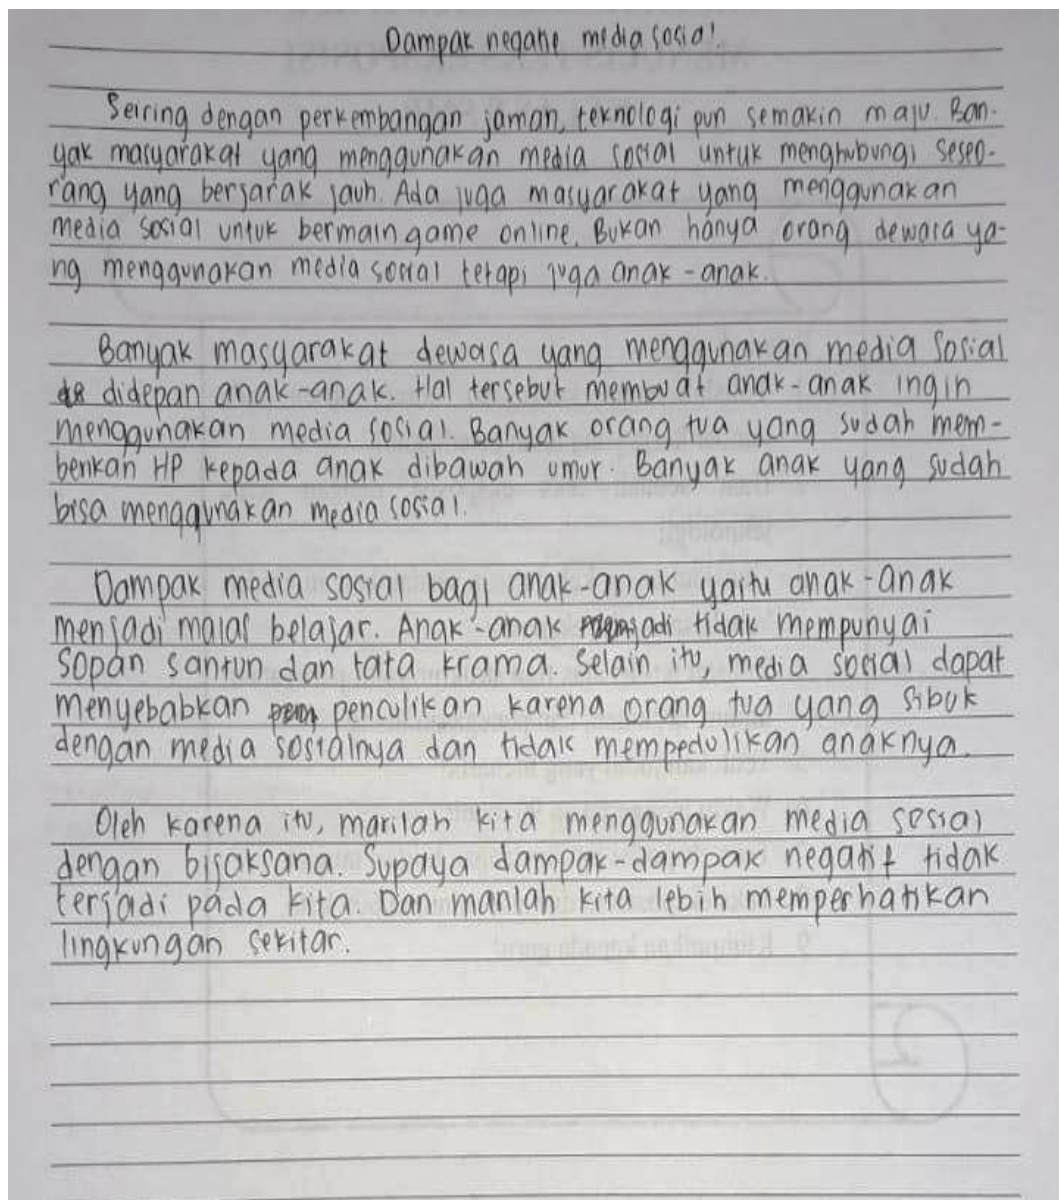 Dampak negatif media sosial
Seiring dengan perkembangan jaman, teknologi pun semakin maju. Ban-
yak masyarakat yang menggunakan media sosial untuk menghubungi seseo-
rang yang berjarak jauh. Ada juga masyarakat yang menggunakan
media sosial untuk bermain game online. Bukan hanya orang dewasa ya-
ng menggunakan media sosial tetapi juga anak-anak.
Banyak masyarakat dewasa yang menggunakan media sosial
didepan anak-anak. Hal tersebut membuat anak-anak ingin
menggunakan media sosial. Banyak orang tua yang sudah mem-
berikan HP kepada anak dibawah umur. Banyak anak yang sudah
bisa menggunakan media sosial.
Dampak media sosial bagi anak-anak yaitu anak-anak
menjadi malas belajar. Anak-anak menjadi tidak mempunyai
sopan santun dan tata krama. Selain itu, media sosial dapat
menyebabkan penculikan karena orang tua yang sibuk
dengan media sosialnya dan tidak mempedulikan anaknya.
Oleh karena itu, marilah kita menggunakan media sosial
dengan bijaksana. Supaya dampak-dampak negatif tidak
terjadi pada kita. Dan marilah kita lebih memperhatikan
lingkungan sekitar.